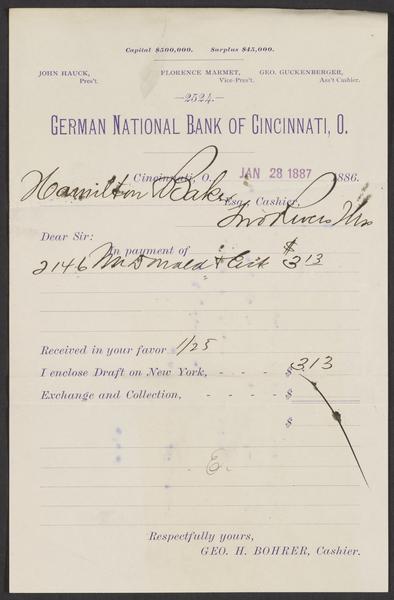 Capital $500,000. Surplus $45,000.
JOHN HAUCK, Pres't. FLORENCE MARMET, Vice-Pres't. GEO. GUCKENBERGER, Ass't Cashier.
—2524.—
GERMAN NATIONAL BANK OF CINCINNATI, O.
Cincinnati, O. JAN 28 1887 1886.
Hamilton Esq. Cashier,
Rivers
Dear Sir:
In payment of
2146 McDonald & $3 13
Received in your favor 1/25
I enclose Draft on New York, - - - $ 3.13
Exchange and Collection, - - - - $
$
E.
Respectfully yours,
GEO. H. BOHRER, Cashier.